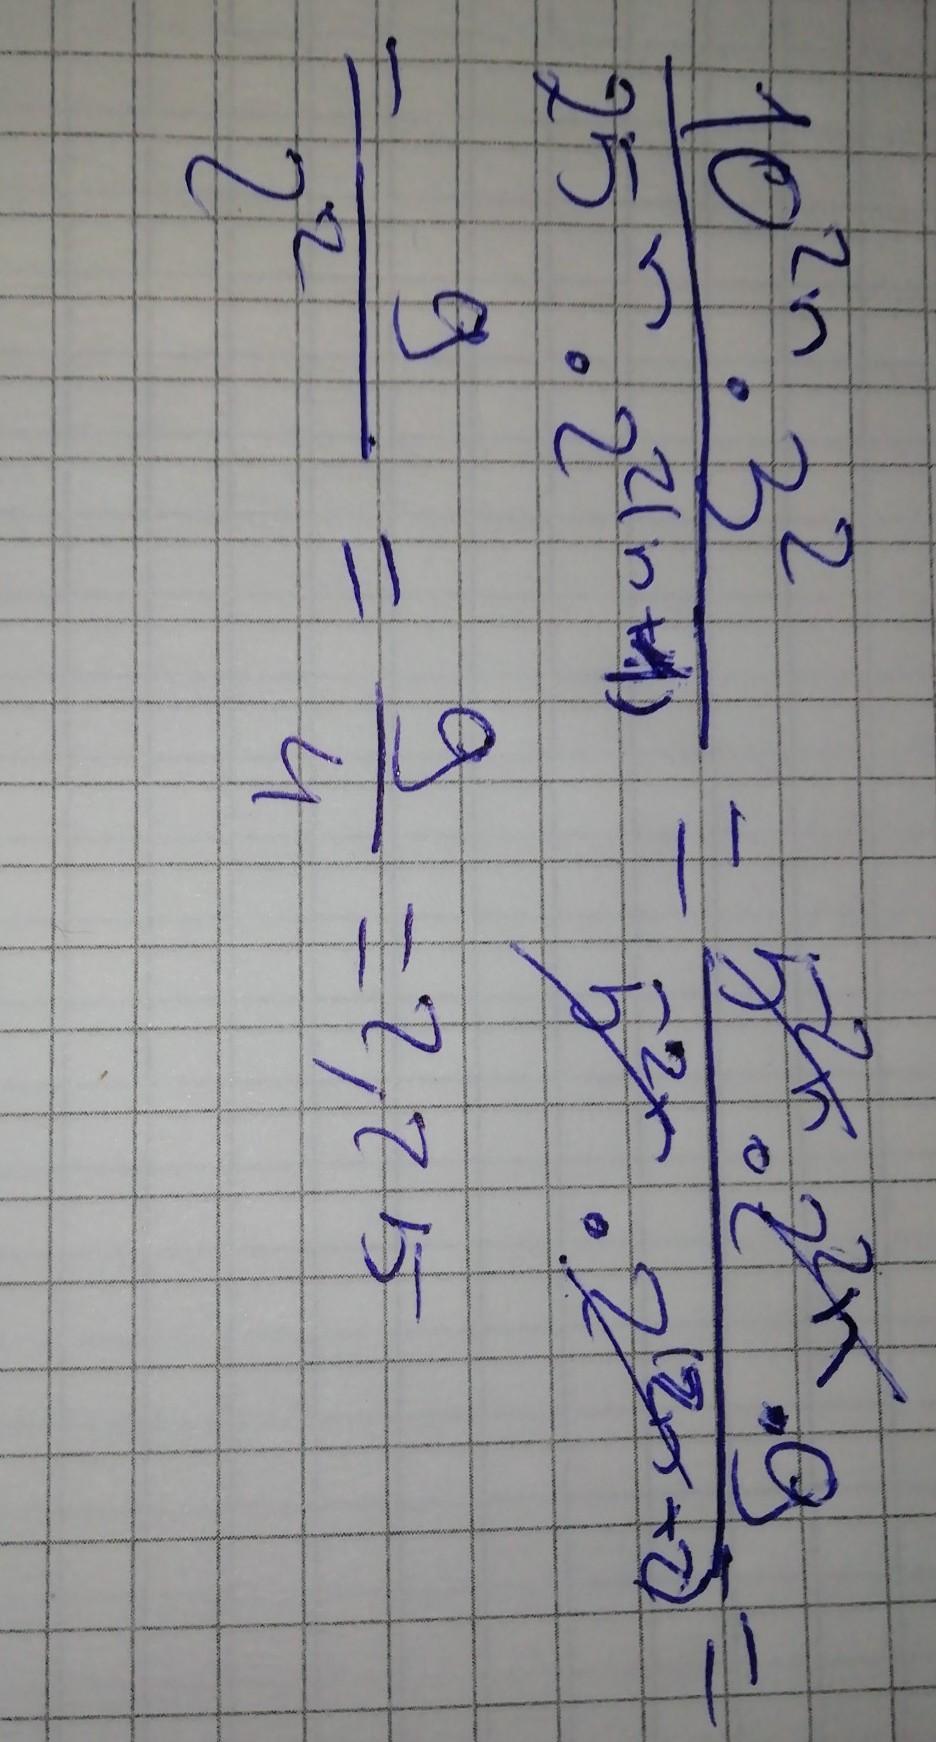 10²ⁿ · 3² / 25ⁿ · 2²⁽ⁿ⁺¹⁾ = 5²ⁿ · 2²ⁿ · 9 / 5²ⁿ · 2⁽²ⁿ⁺²⁾ =
= 9 / 2² = 9 / 4 = 2,25